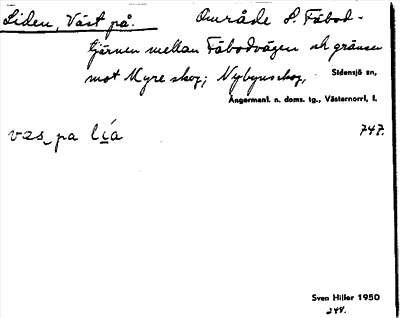 Liden, Väst på. Område S. Fäbod-
tjärnen mellan Fäbodvägen och gränsen
mot Myre skog; Nybynsskog, Sidensjö sn,
Ångermanl. n. doms. tg., Västernorrl. l.
væs_ pa lía 747.
Sven Hiller 1950
244.